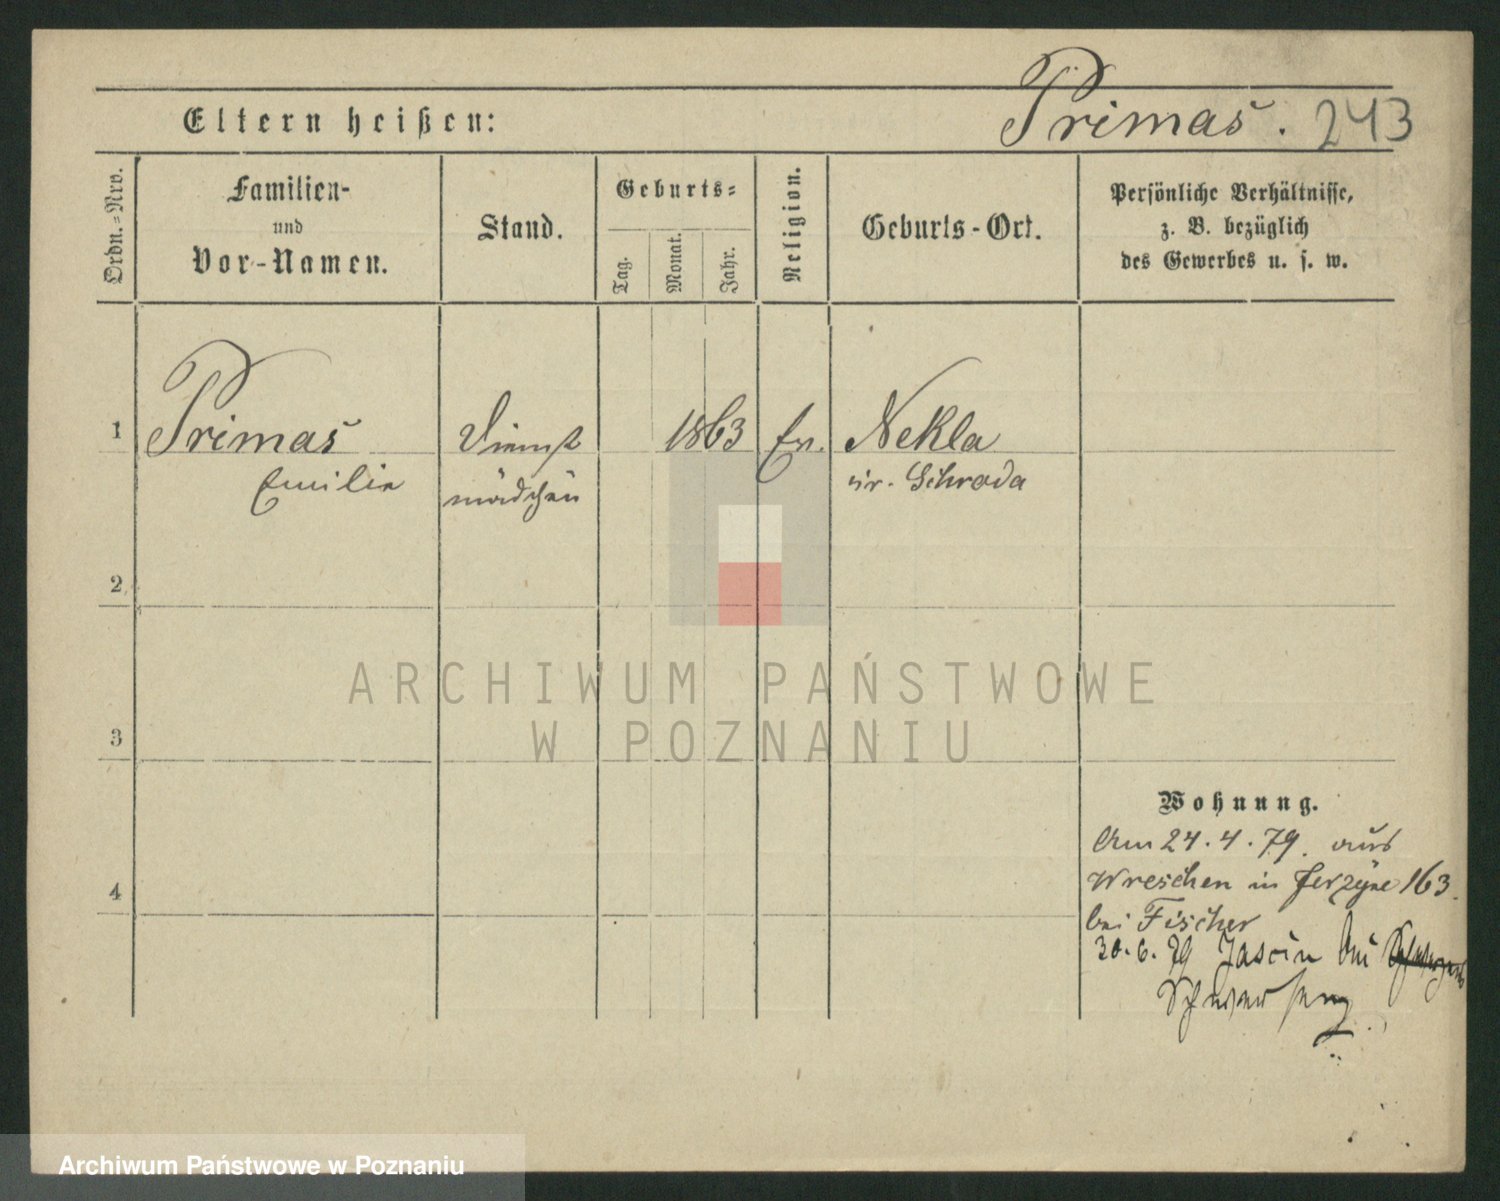 Primas. 243
Eltern heißen:
Ordn.-Nro.
Familien-
und
Vor-Namen.
Stand.
Geburts-
Tag.
Monat.
Jahr.
Religion.
Geburts-Ort.
Persönliche Verhältnisse,
z. B. bezüglich
des Gewerbes u. s. w.
1 Primas Dienst 1863 Ev. Nekla
Emilie mädchen Kr. Schroda
2
3
4
Wohnung.
Am 24. 4. 79. aus
Wreschen in Jerzyce 163.
bei Fischer
30. 6. 79 Jasin bei
Schwersenz
ARCHIWUM PAŃSTWOWE
W POZNANIU
Archiwum Państwowe w Poznaniu